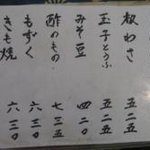 板わさ 五二五
玉子とうふ 五二五
みそ豆 四二〇
酢のもの 七三五
もずく 六三〇
きも焼 六三〇